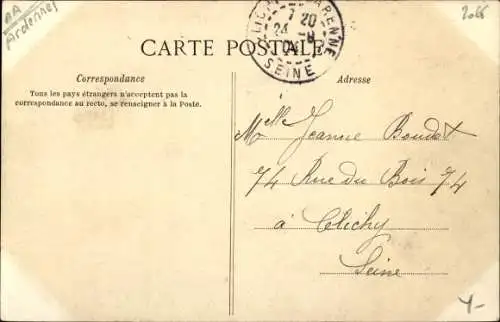 AA
Ardennes
2066
CLICHY GARENNE
7 20
24 -8
04
SEINE
CARTE POSTALE
Correspondance
Tous les pays étrangers n'acceptent pas la
correspondance au recto, se renseigner à la Poste.
Adresse
Melle Jeanne Boudet
74 Rue du Bois 74
à Clichy
Seine
4-